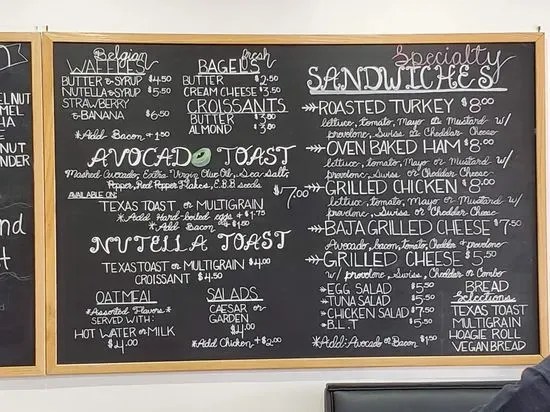 ELNUT
MEL
HA
E
NUT
NDER
nd
H
Belgian
WAFFLES
BUTTER & SYRUP $4.50
NUTELLA & SYRUP $5.50
STRAWBERRY
& BANANA $6.50
*Add Bacon + 1.50
fresh
BAGELS
BUTTER $2.50
CREAM CHEESE $3.50
CROISSANTS
BUTTER $3.50
ALMOND $3.50
AVOCADO TOAST
Mashed Avocado, Extra Virgin Olive Oil, Sea Salt,
Pepper, Red Pepper Flakes, E.B.B seeds
$7.00
AVAILABLE ON:
TEXAS TOAST or MULTIGRAIN
*Add Hard-boiled eggs + $1.75
*Add Bacon + $1.50
NUTELLA TOAST
TEXAS TOAST or MULTIGRAIN $4.00
CROISSANT $4.50
OATMEAL
*Assorted Flavors*
SERVED WITH:
HOT WATER or MILK
$4.00
SALADS
CAESAR or
GARDEN
$4.00
*Add Chicken + $2.00
Specialty
SANDWICHES
ROASTED TURKEY $8.00
lettuce, tomato, Mayo or Mustard w/
provolone, Swiss or Cheddar Cheese
OVEN BAKED HAM $8.00
lettuce, tomato, Mayo or Mustard w/
provolone, Swiss or Cheddar Cheese
GRILLED CHICKEN $8.00
lettuce, tomato, Mayo or Mustard w/
provolone, Swiss, or Cheddar Cheese
BAJA GRILLED CHEESE $7.50
Avocado, bacon, tomato, Cheddar + provolone
GRILLED CHEESE $5.50
w/ provolone, Swiss, Cheddar or Combo
*EGG SALAD $5.50
*TUNA SALAD $5.50
*CHICKEN SALAD $7.50
*B.L.T $5.50
*Add: Avocado or Bacon $1.50
BREAD
Selections:
TEXAS TOAST
MULTIGRAIN
HOAGIE ROLL
VEGAN BREAD